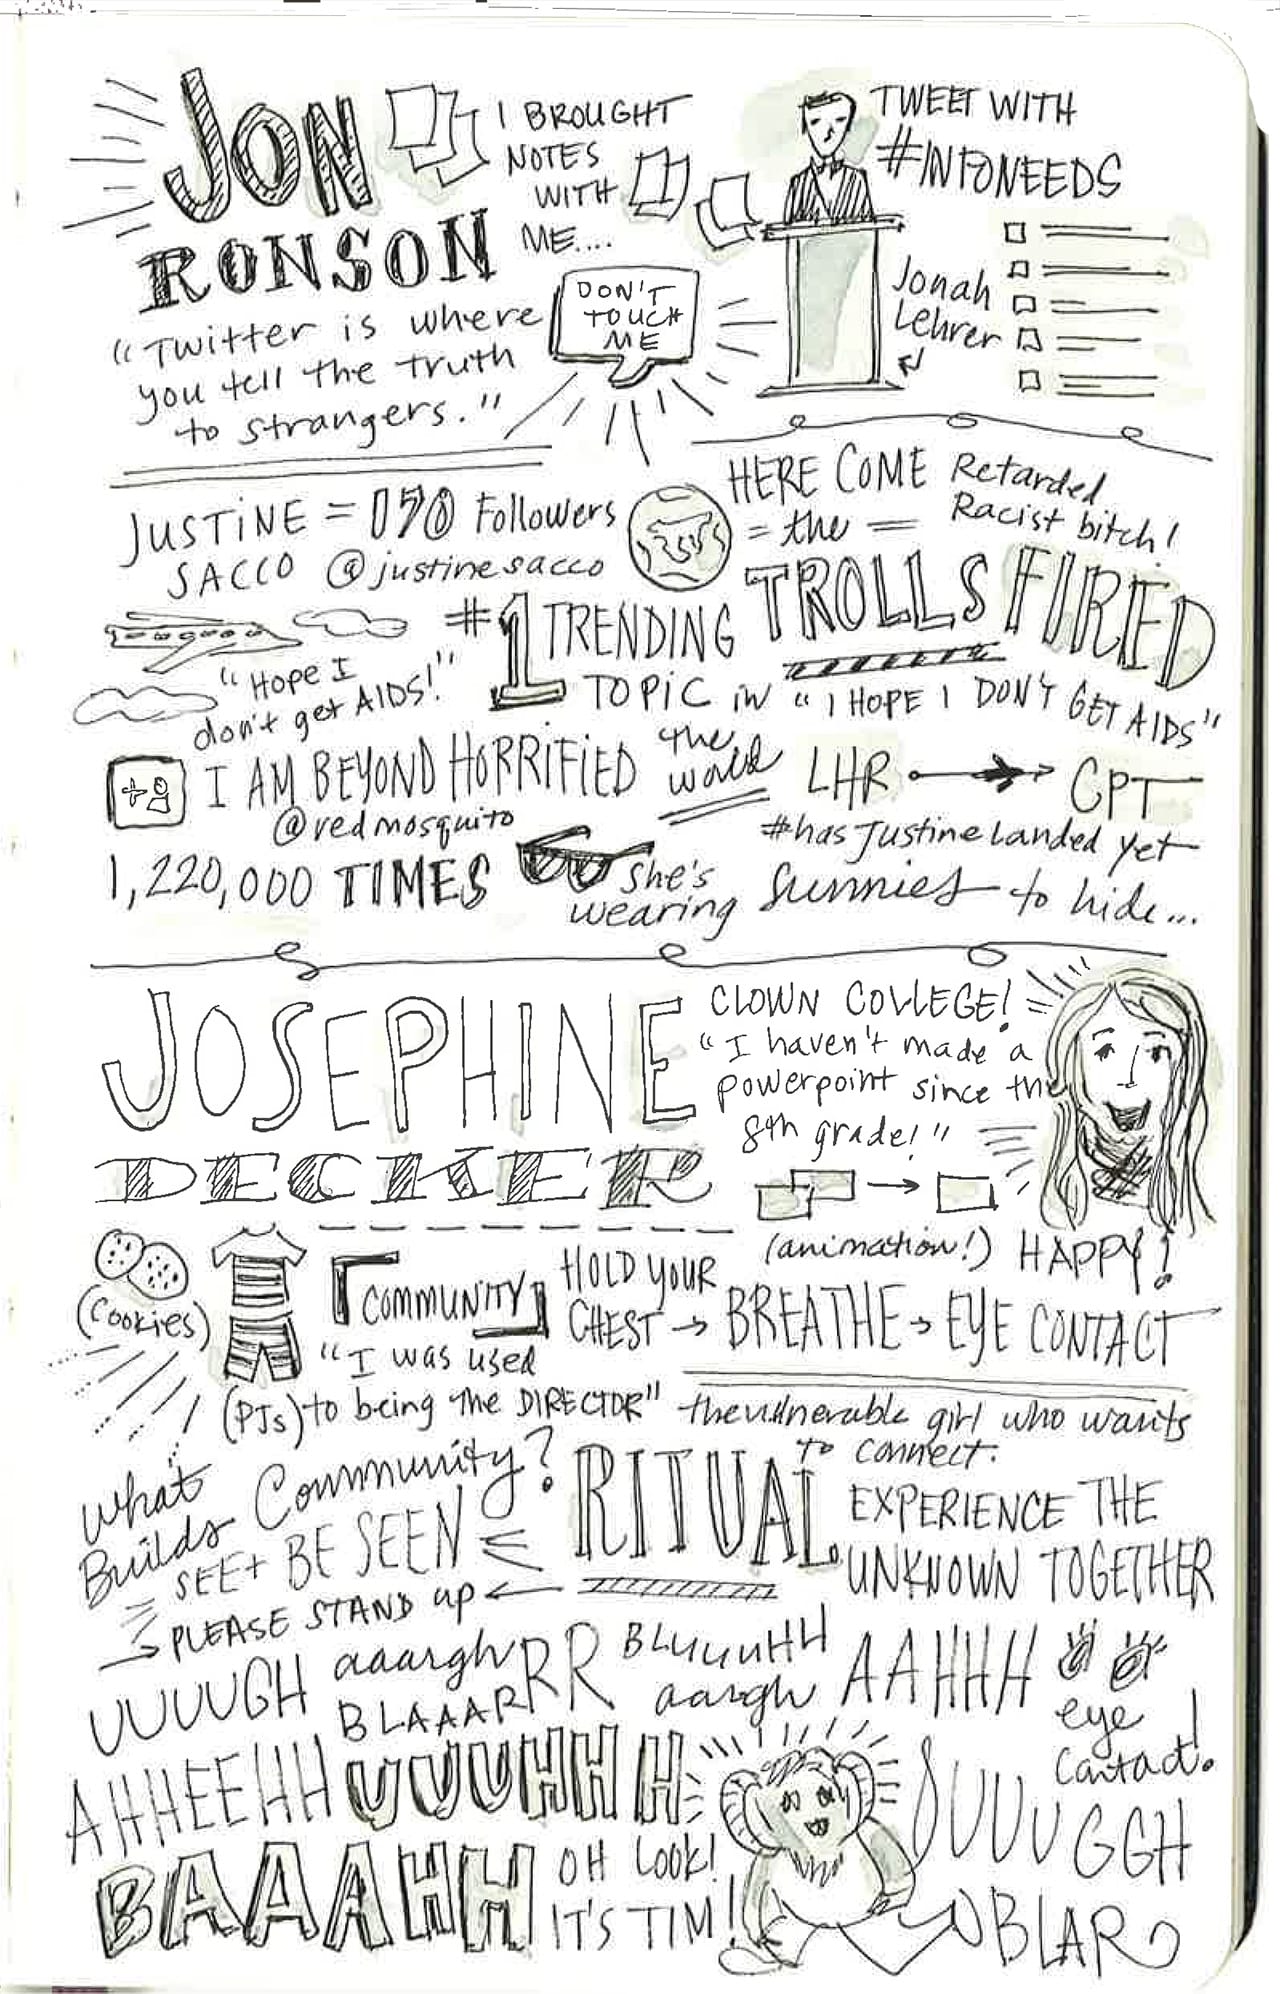 JON
RONSON
I BROUGHT
NOTES
WITH
ME....
TWEET WITH
#INFONEEDS
Jonah
Lehrer
DON'T
TOUCH
ME
"Twitter is where
you tell the truth
to strangers."
JUSTINE = 170 Followers
SACCO @justinesacco
HERE COME
= the =
TROLLS
Retarded
Racist bitch!
FIRED
"Hope I
don't get AIDS!"
#1 TRENDING
TOPIC in
the
world
"I HOPE I DON'T GET AIDS"
I AM BEYOND HORRIFIED
@redmosquito
LHR → CPT
#hasJustinelanded yet
1,220,000 TIMES
She's
wearing sunnies to hide...
JOSEPHINE
DECKER
CLOWN COLLEGE!
"I haven't made a
powerpoint since the
8th grade!"
(animation!) HAPPY!
(Cookies)
(PJs)
COMMUNITY
HOLD YOUR
CHEST → BREATHE → EYE CONTACT
"I was used
to being the DIRECTOR"
the vulnerable girl who wants
to connect.
What
Builds Community?
SEE + BE SEEN
RITUAL
EXPERIENCE THE
UNKNOWN TOGETHER
PLEASE STAND up
UUUUGH
aaarghRRR
BLAAAR
BLUUUHH
aargh
AAHHH
eye
contact!
AHHEEHH UUUHHH
UUUGGH
BAAAHH
OH Look!
IT'S TIM!
BLAR